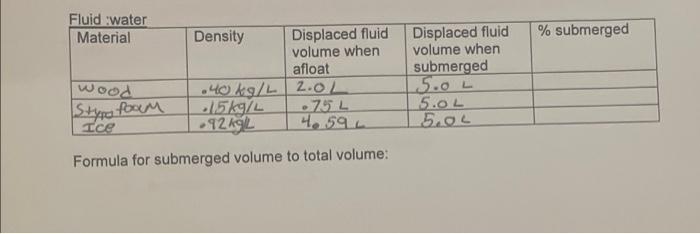 Fluid :water
Material Density Displaced fluid volume when afloat Displaced fluid volume when submerged % submerged
wood .40 kg/L 2.0 L 5.0 L
Styrofoam .15kg/L .75 L 5.0 L
Ice .92kg/L 4.59 L 5.0 L
Formula for submerged volume to total volume: